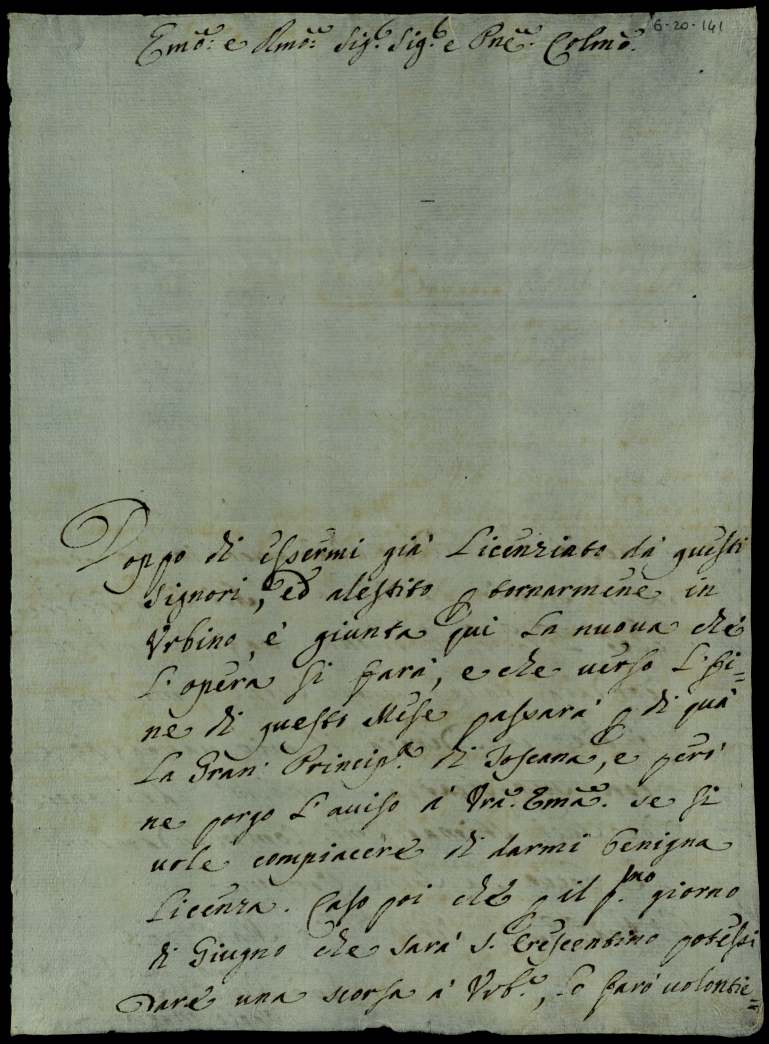 6-20-141
Emo: e Rmo: Sigr. Sigr. e Pne. Colmo.
Doppo di essermi già Licenziato dà questi
Signori, ed alestito p tornarmene in
Vrbino, è giunta qui La nuoua che
L'opera si farà, e che uerso L'fi=
ne di questo Mese passarà p di quà
La Gran: Principa. di Toscana, e però
ne porgo L'auiso à Vra. Ema. se si
uole compiacere di darmi benigna
Licenza. Caso poi che p il pmo. giorno
di Giugno che sarà S. Crescentino potessi
Dare una scorsa à Vrbo., Lo farò uolontie=